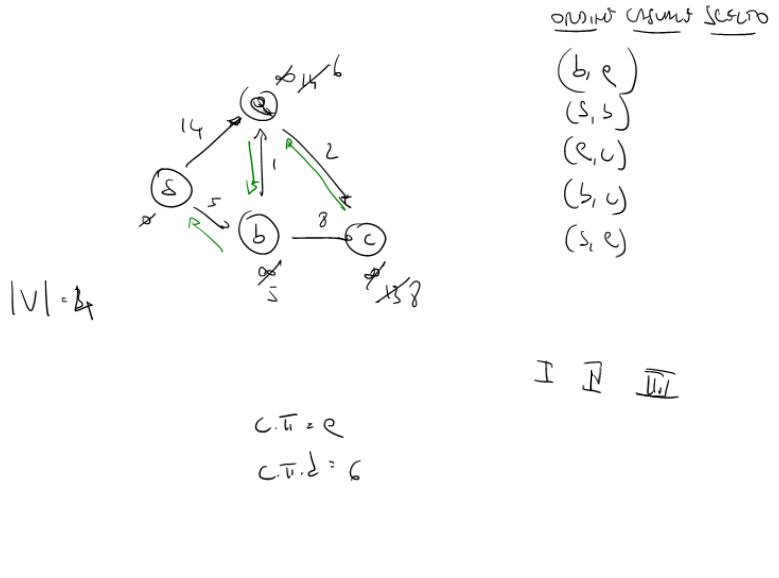 ORDINE CASUALE SCELTO
(b, e)
(S, b)
(e, c)
(b, c)
(S, e)
∞ 14 6
14
2
S
5
1
b
8
c
∞
5
∞ 13 8
|V| = 4
I II III
C.π = e
C.π.d = 6